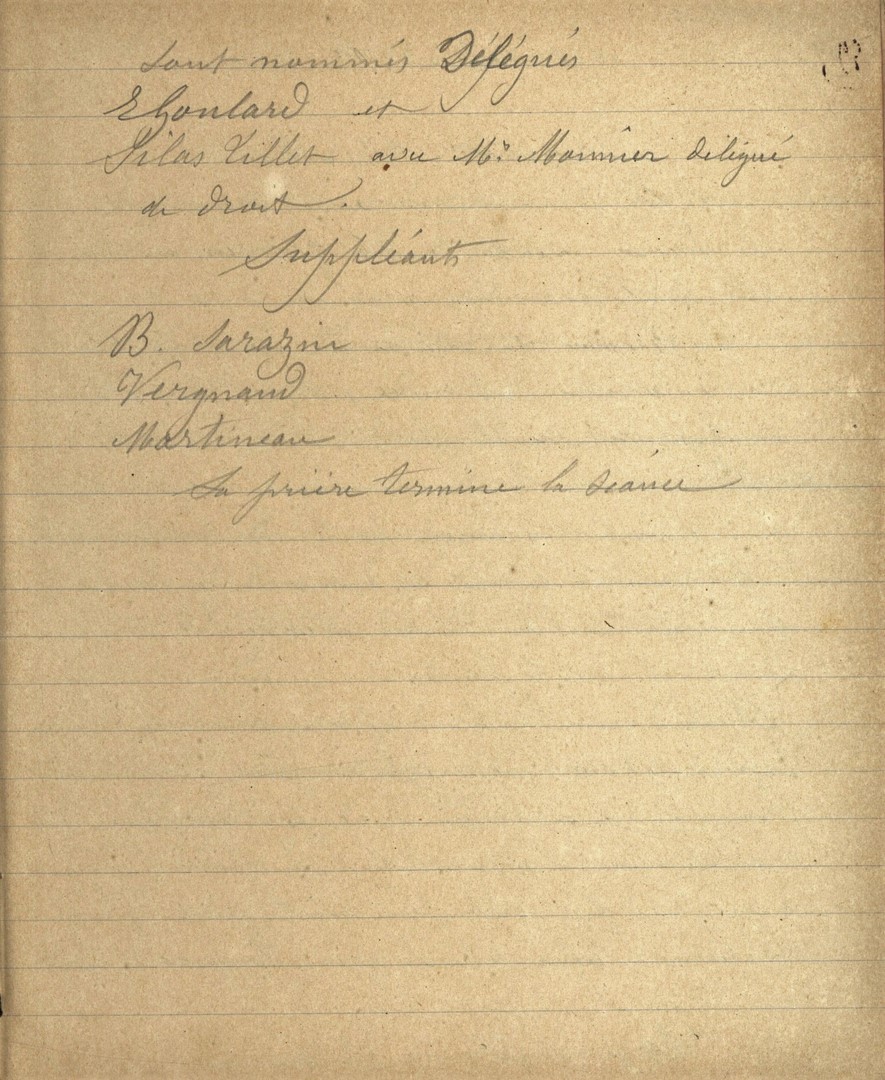 sont nommés Délégués
E Goulard et
Silas Tillet avec Mr Monnier délégué
de droit.
Suppléants
B. Sarazin
Vergnaud
Martineau
La prière termine la séance